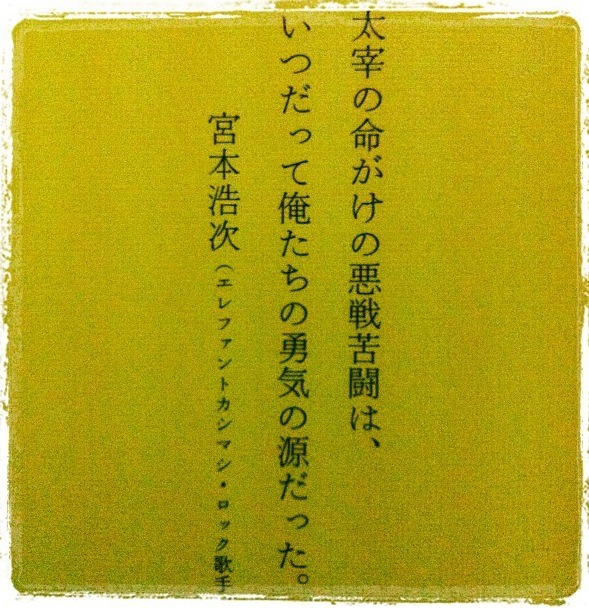 太宰の命がけの悪戦苦闘は、
いつだって俺たちの勇気の源だった。
宮本浩次（エレファントカシマシ・ロック歌手